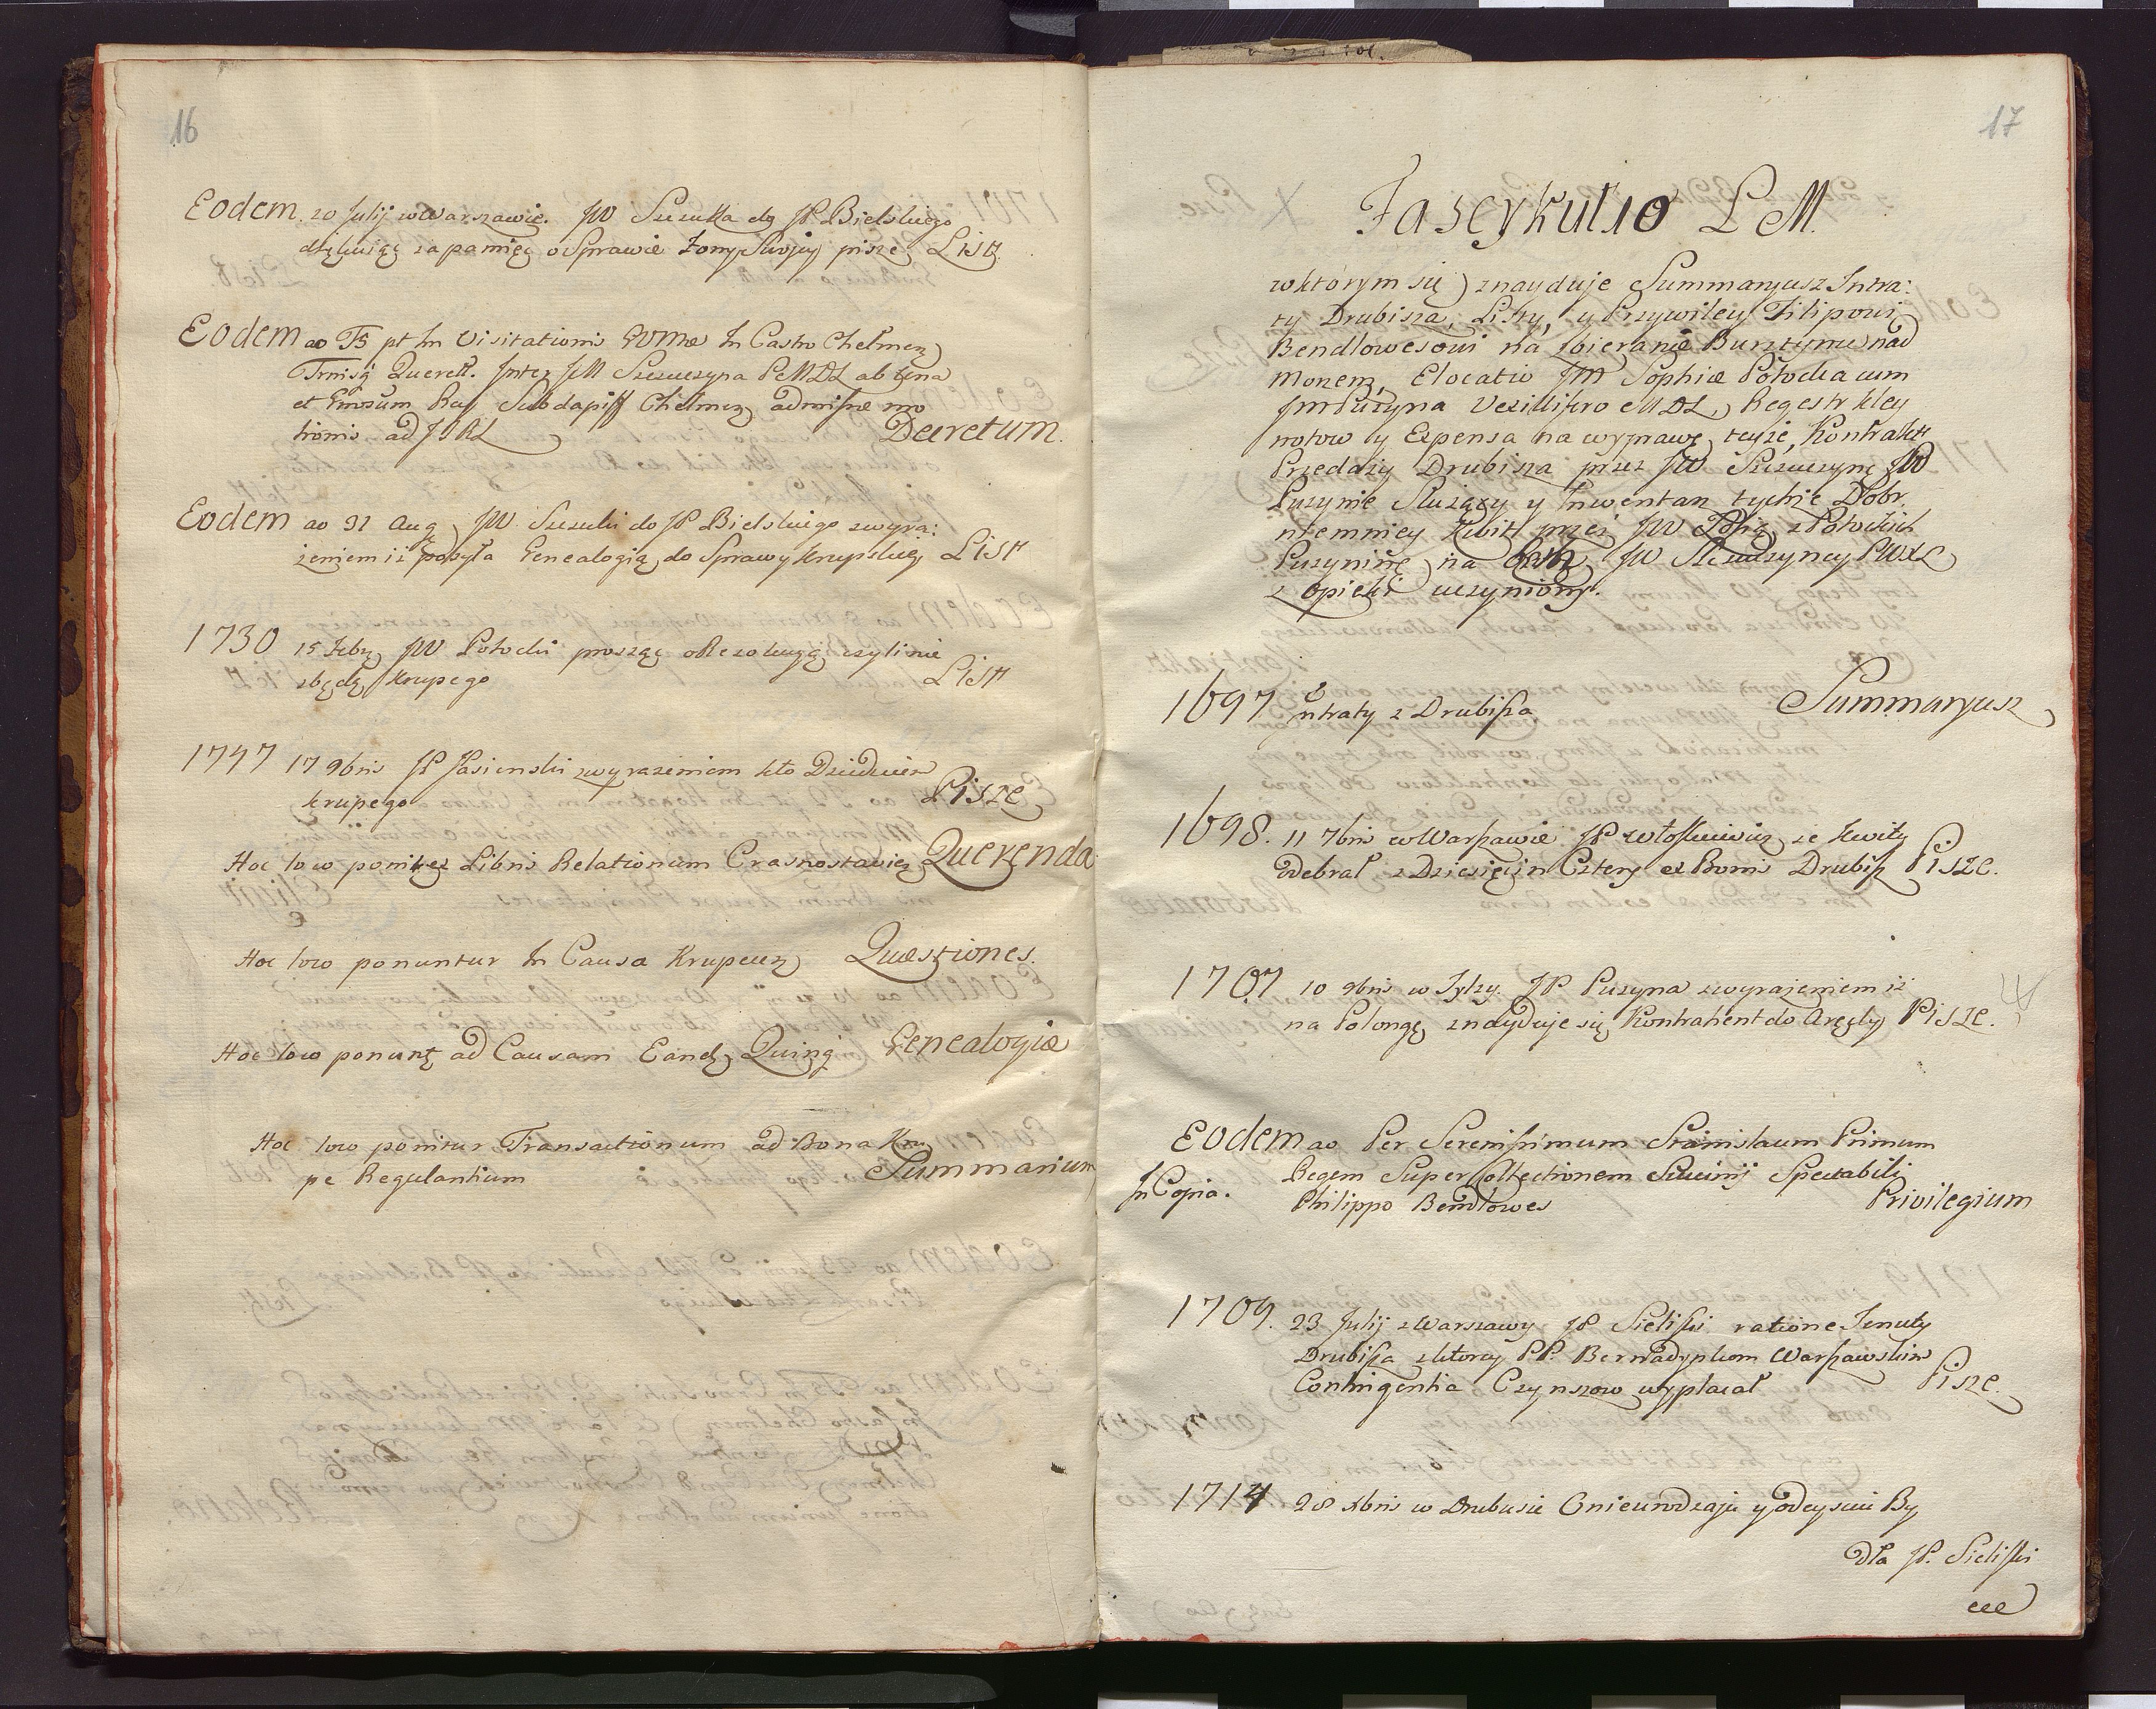 16
Eodem. 20 Julij w Warszawie. JW Szczuka do JP. Bielskiego
dziękuiąc za pamięć o Sprawie Żony Swojey pisze List
Eodem ao Fs pt In Visitationis BVMæ In Castro Chelmen
Querell. Inter JM Szczuczyna ab una
et Subdapiff Chelmen admissæ mo
tionis ad JTRL Decretum.
Eodem ao 31 Aug JW. Szczuki do JP. Bielskiego z wyra:
żeniem iż posyła Genealogią do Sprawy Krupskiey List
1730 15 Febr JW Potocki prosząc o Rezolucyą czyli nie
zbędą Krupego List
1747 17 9bris JP Jasienski z wyrazeniem kto Dziedzicem
Krupego Pisze
Hoc loco ponitur ex Libris Relationum Crasnostavien Querenda
Hoc loco ponuntur In Causa Krupecen Quæstiones.
Hoc loco ponunt ad Causam Eand Genealogiæ
Hoc loco ponitur Transactionum ad Bona Kru
pe Regulantium Summarium
17
Fascykuł 10 L M.
w którym się znayduje Summaryusz Intra:
ty Drubisza, Listy, y Przywiley Filipowi
Bendlowesowi na zbieranie Bursztynu nad
Morzem, Elocatio JM Sophiæ Potocka cum
JM Puzyna Vexillifero MDL, Regestr kley
notow y Expensa na wyprawę teyże, Kontrakt
Przedaży Drubisza przez JW Szczuczynę JW
Puzynie Służący y Inwentarz tychże Dobr.
niemniey Kwit przez JW Zofią z Potockich
Puzyninę na JW Szczuczyney PWXL
z opieki uczyniony.
1697 Intraty z Drubisza Summaryusz
1698. 11 7bris w Warszawie JP. ze kwity
odebrał z Dziesięcin Cztery ex Bonis Drubisz Pisze.
1707 10 9bris w Tylży. JP Puzyna z wyrażeniem iż
na Polongę znayduje się Kontrahent do Arędy Pisze.
Eodem ao Per Serenissimum Stanislaum Primum
Regem Super Collectionem Succinij Spectabili
In Copia. Philippo Bendlowes Privilegium
1709. 23 Julij z Warszawy JP Sieliski ratione Tenuty
Drubisza z ktorey PP. Bernadynkom Warszawskim
Contingentia Czynszow wypłacał Pisze.
1714 28 Xbris w Drubisie O nieurodzaju y odeyściu By
dła JP. Sieliski